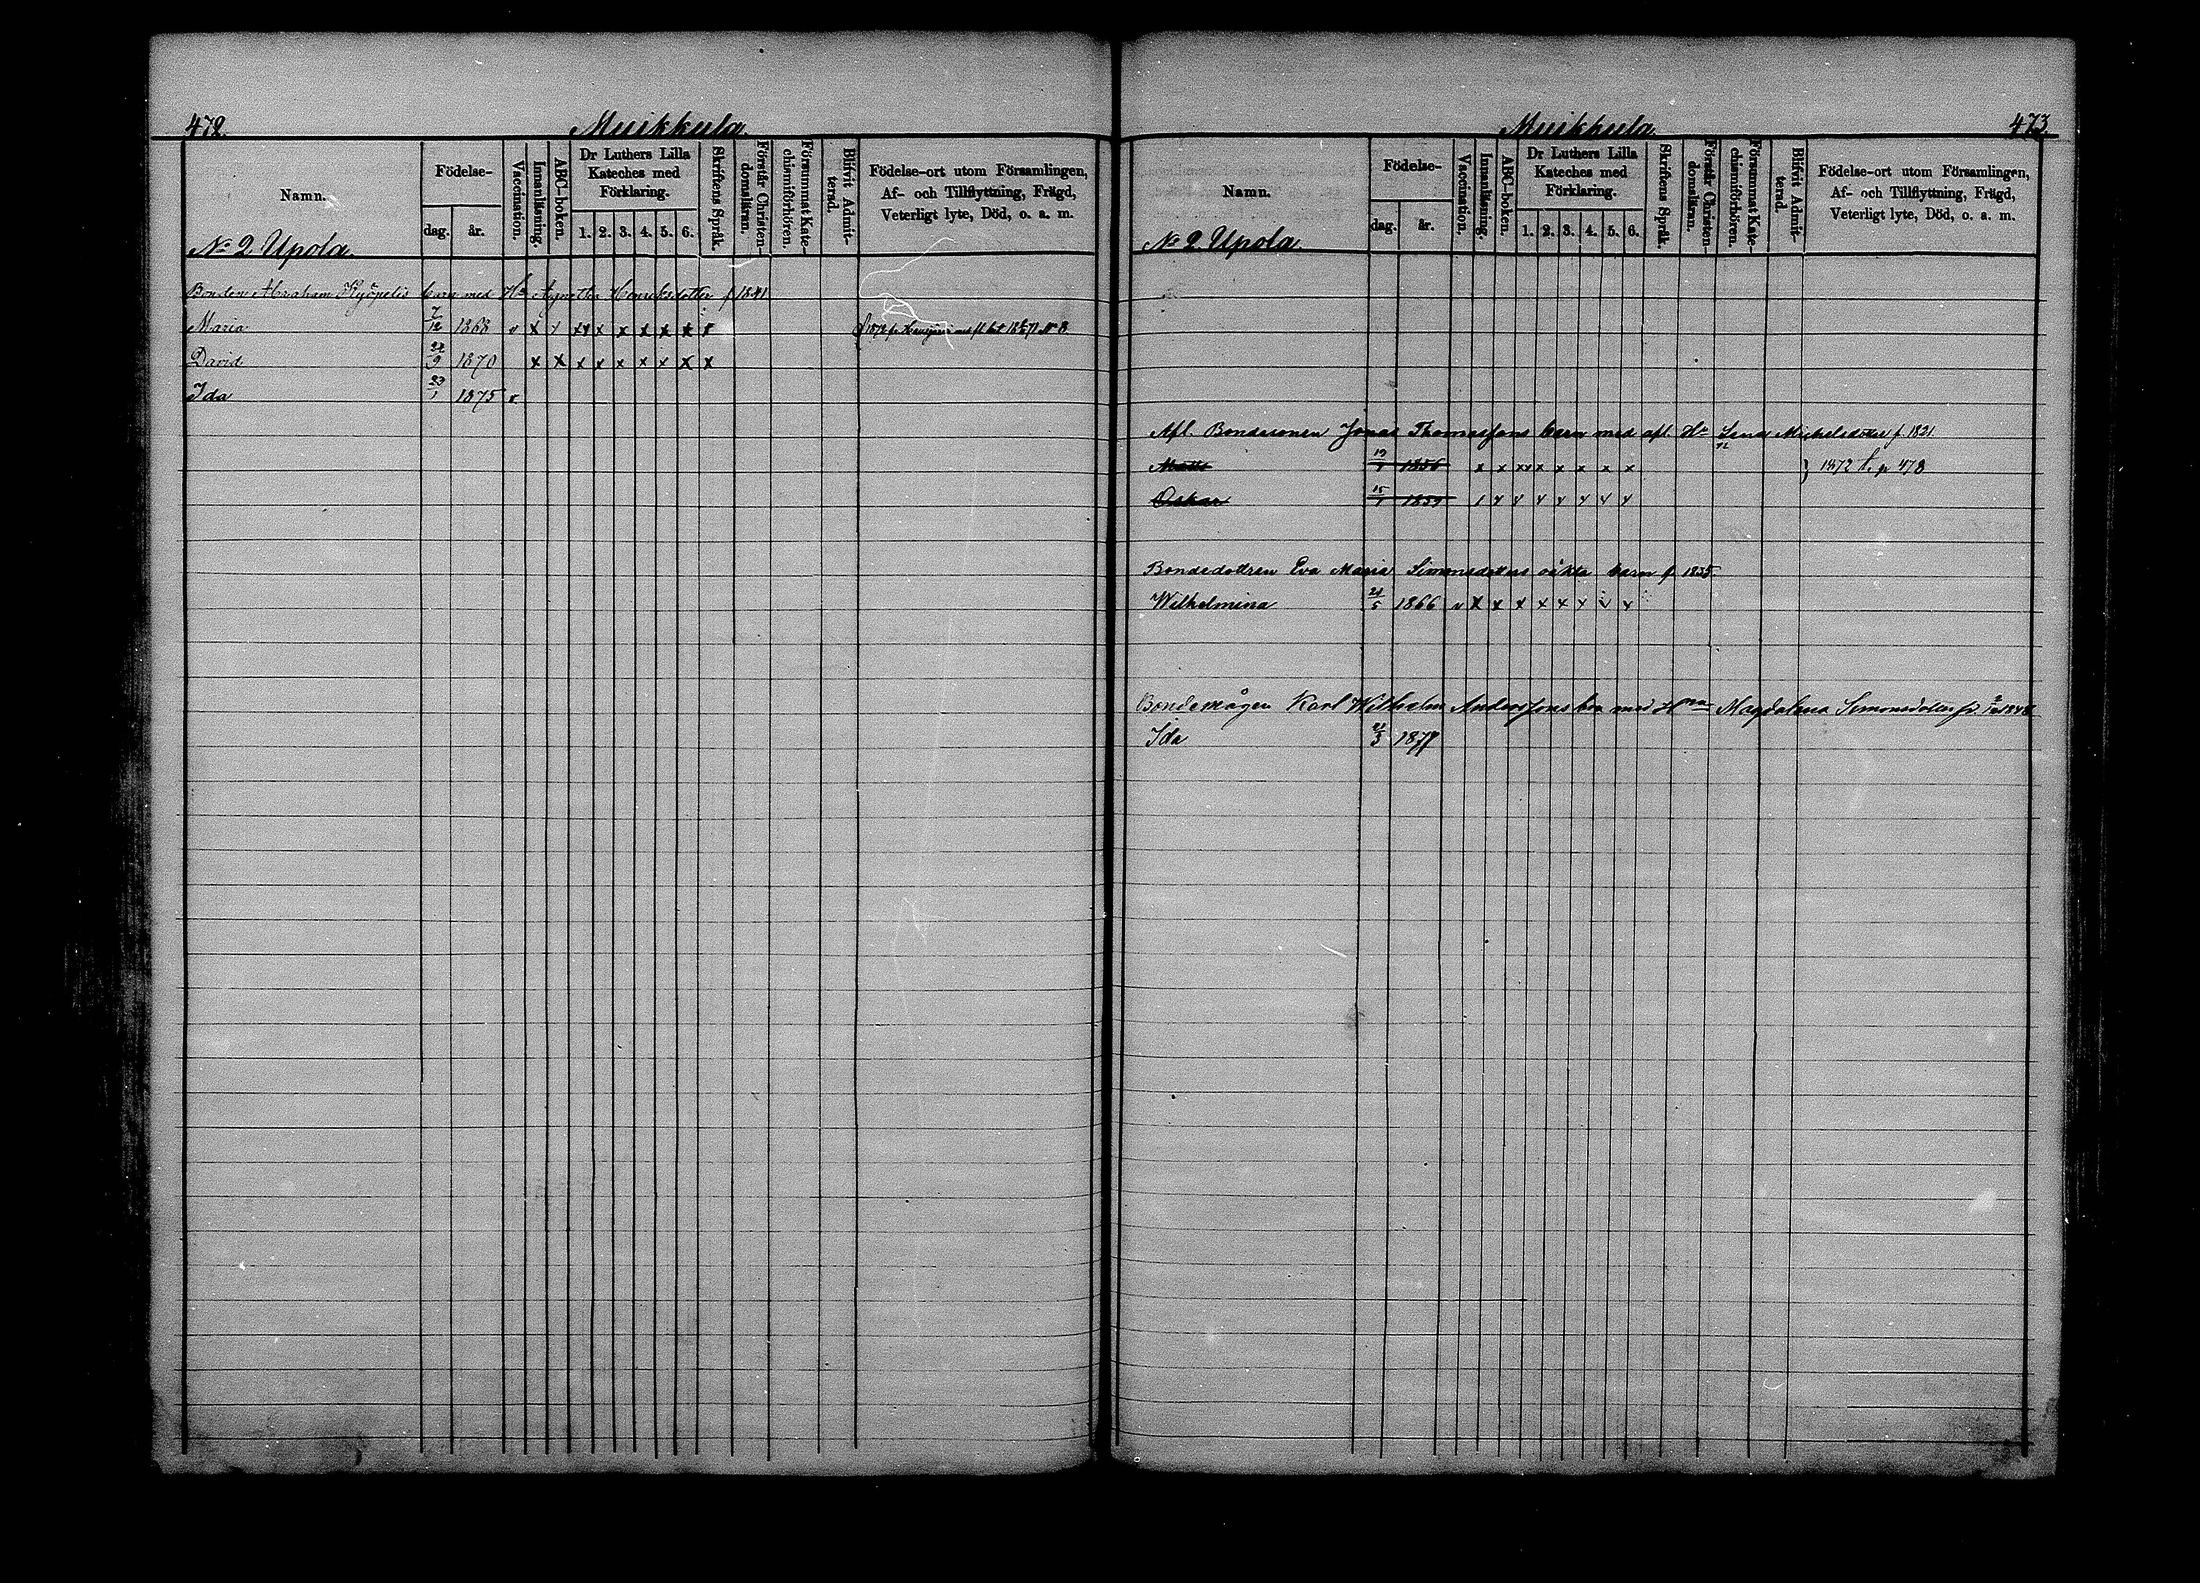 472. Muikkula.
Namn. Födelse- dag. år. Vaccination. Innanläsning. ABC-boken. Dr Luthers Lilla Kateches med Förklaring. 1. 2. 3. 4. 5. 6. Skriftens Språk. Förstår Christendomsläran. Försummat Katechismiförhören. Blifvit Admitterad. Födelse-ort utom Församlingen, Af- och Tillflyttning, Frägd, Veterligt lyte, Död, o. a. m.
No 2 Upola.
Bonden Abraham Kyöpelis barn med Hu Agnetha Henriksdotter f 1841
Maria 7/12 1868 v x x xx x x x x x x 1872 fr Hausjärvi
David 22/9 1870 x x x x x x x x x
Ida 23/1 1875 v
Muikkula 473
Namn. Födelse- dag. år. Vaccination. Innanläsning. ABC-boken. Dr Luthers Lilla Kateches med Förklaring. 1. 2. 3. 4. 5. 6. Skriftens Språk. Förstår Christendomsläran. Försummat Katechismiförhören. Blifvit Admitterad. Födelse-ort utom Församlingen, Af- och Tillflyttning, Frägd, Veterligt lyte, Död, o. a. m.
No 2 Upola.
Afl. Bondesonen Jonas Thomassons barn med afl. Hu Lena Michelsdotter f. 1821
Matts 1856 x x xx x x x x x 1872 t. p 478
Oskar 15/1 1859 x x x x x x x
Bondedottren Eva Maria Simonsdotters oäkta barn f 1835
Wilhelmina 21/5 1866 v x x x x x x v x
Bondemågen Karl Wilhelm Anderssons barn med Hru Magdalena Simonsdotter
Ida 21/3 1877